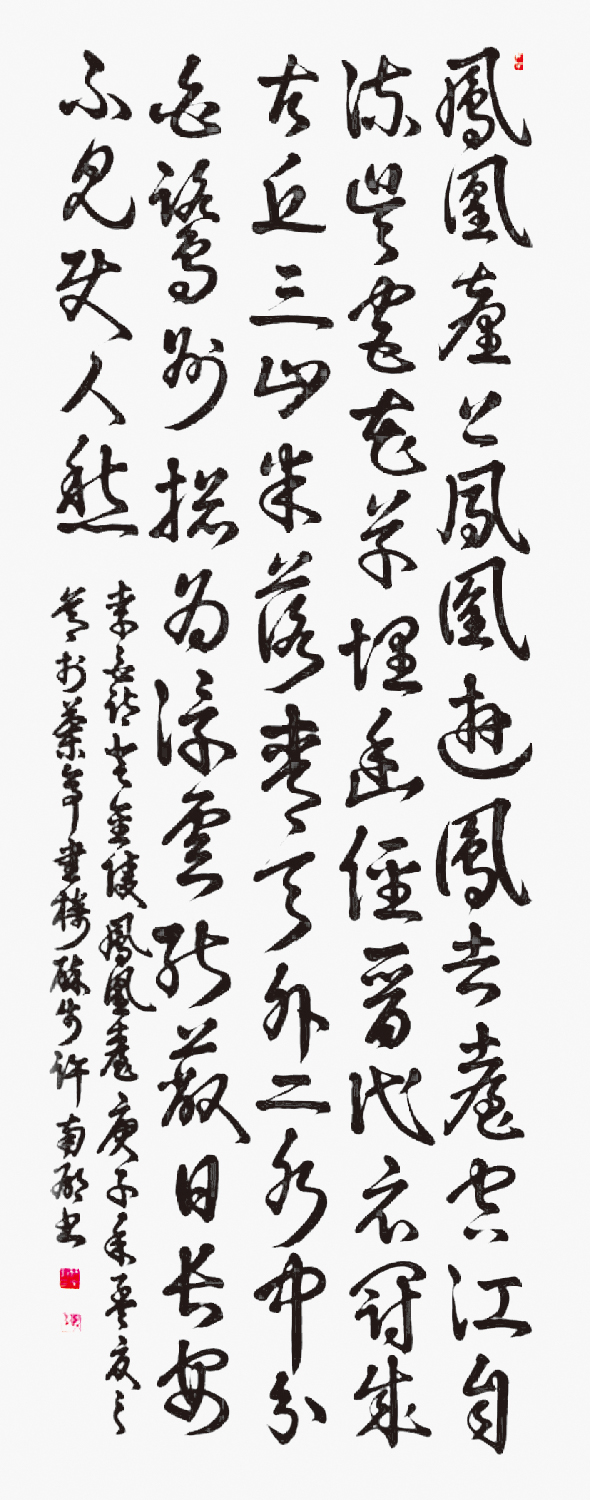 鳳凰臺上鳳凰遊鳳去臺空江自
流吳宮花草埋幽徑晉代衣冠成
古丘三山半落青天外二水中分
白鷺洲總為浮雲能蔽日長安
不見使人愁
李白詩登金陵鳳凰臺庚子年孟夏之
於書樓許南書